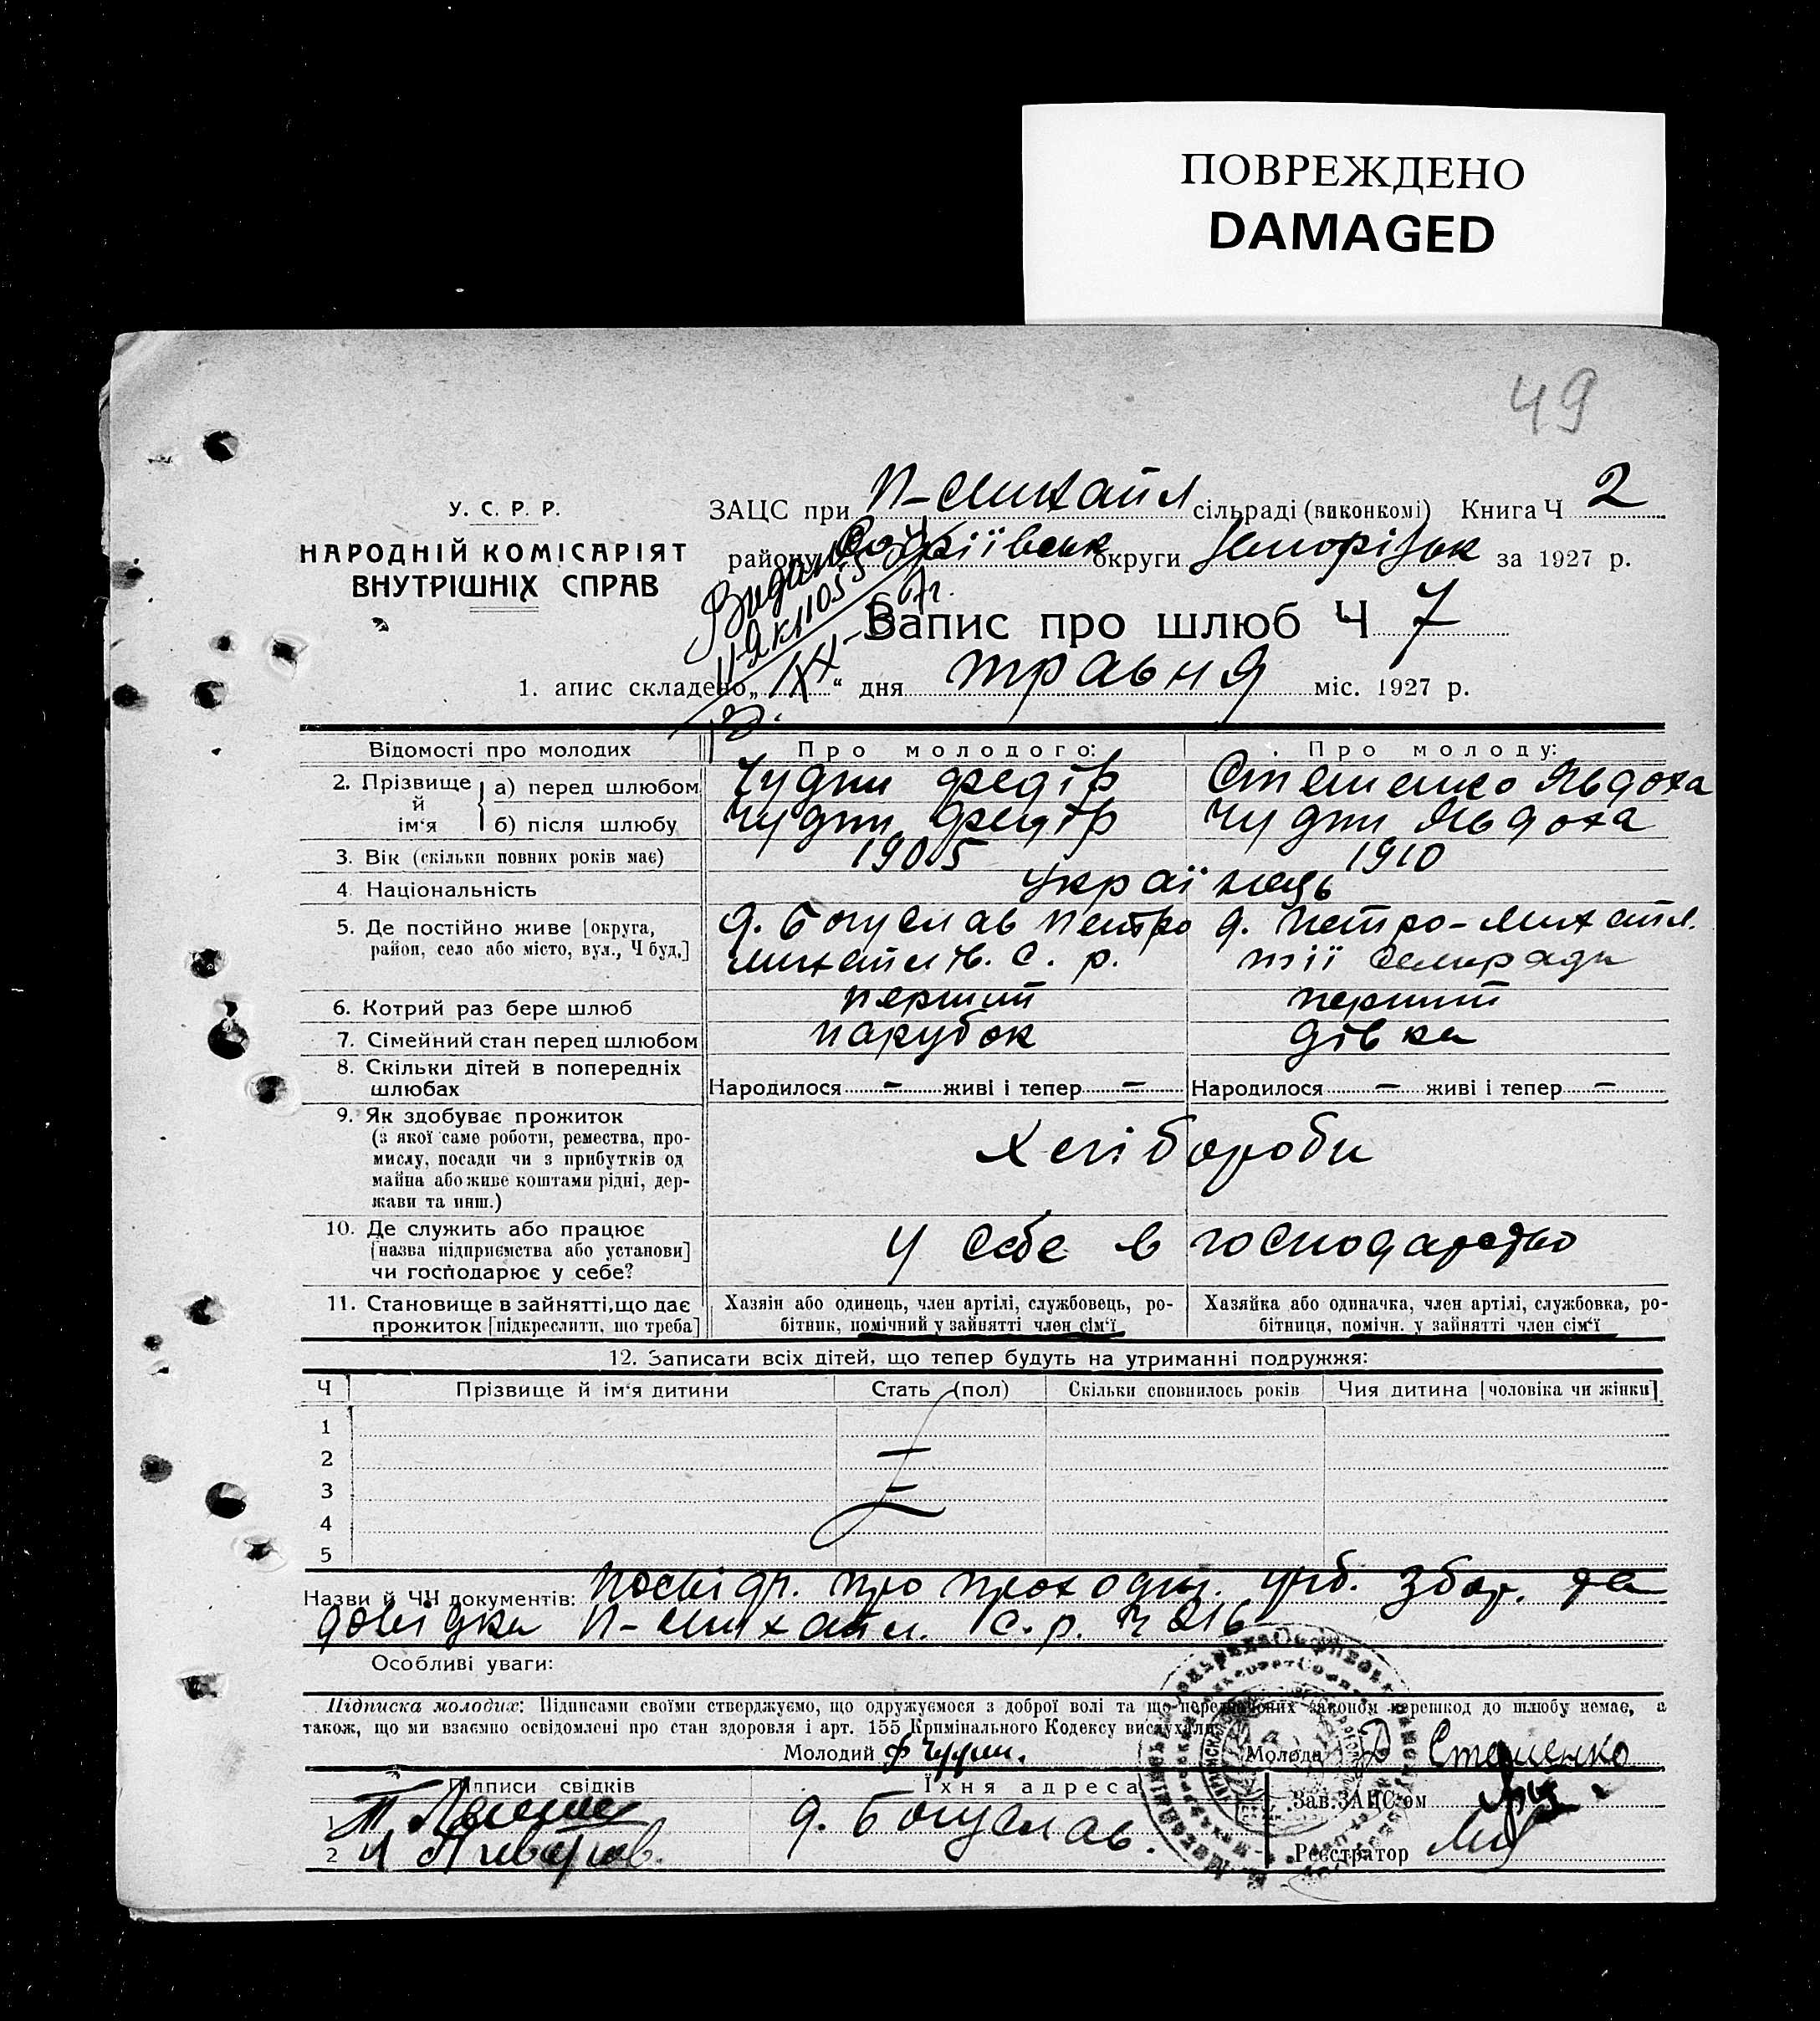 ПОВРЕЖДЕНО
DAMAGED
49
У. С. Р. Р.
НАРОДНІЙ КОМІСАРІЯТ
ВНУТРІШНІХ СПРАВ
ЗАЦС при П-Михайл сільраді (виконкомі) Книга Ч 2
району Софіївськ округи за 1927 р.
Запис про шлюб Ч 7
1. апис складено „ “ дня травня міс. 1927 р.
Відомості про молодих Про молодого: Про молоду:
2. Прізвище й ім‘я а) перед шлюбом Чудни Федір Стешенко Явдоха
б) після шлюбу Чудни Федір Чудни Явдоха
3. Вік (скільки повних років має) 1905 1910
4. Національність Українець
5. Де постійно живе [округа, д. Богуслав Петро д. Петро-Михайл.
район, село або місто, вул., Ч буд.] Михайлів. С. р. тії Сельради
6. Котрий раз бере шлюб перший перший
7. Сімейний стан перед шлюбом парубок дівка
8. Скільки дітей в попередніх
шлюбах Народилося – живі і тепер – Народилося – живі і тепер –
9. Як здобуває прожиток
(з якої саме роботи, ремества, про-
мислу, посади чи з прибутків од Хліборoби
майна або живе коштами рідні, дер-
жави та инш.)
10. Де служить або працює
[назва підприємства або установи] у себе в господарство
чи господарює у себе?
11. Становище в зайнятті, що дає Хазяін або одинець, член артілі, службовець, ро- Хазяйка або одиначка, член артілі, службовка, ро-
прожиток [підкреслити, що треба] бітник, помічний у зайнятті член сім‘ї бітниця, помічн. у зайнятті член сім‘ї
12. Записати всіх дітей, що тепер будуть на утриманні подружжя:
Ч Прізвище й ім‘я дитини Стать (пол) Скільки сповнилось років Чия дитина [чоловіка чи жінки]
1
2
3
4
5
Назви й ЧЧ документів: Посвідч. про проходж. учб. збор. та
довідка П-Михайл. С.р. Ч 216
Особливі уваги:
Підписка молодих: Підписами своїми стверджуємо, що одружуємося з доброї волі та що передбачених законом перешкод до шлюбу немає, а
також, що ми взаємно освідомлені про стан здоровля і арт. 155 Кримінального Кодексу вислухали
Молодий Ф Чудни. Молода Стешенко
Підписи свідків Їхня адреса
1 Зав. ЗАЦС‘ом
д. Богуслав.
2 Реєстратор